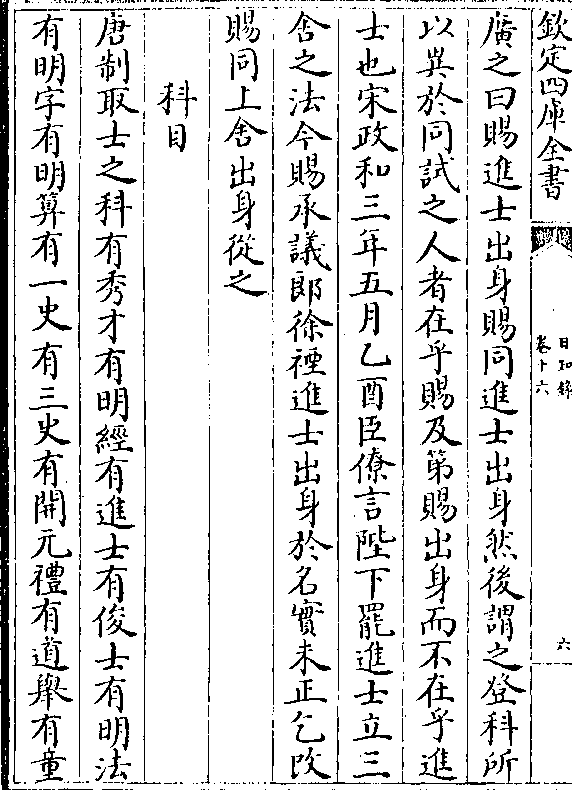 欽定四庫全書
日知錄
卷十六
六
廣之曰賜進士出身賜同進士出身然後謂之登科所
以異於同試之人者在乎賜及第賜出身而不在乎進
士也宋政和三年五月乙酉臣僚言陛下罷進士立三
舍之法今賜承議郎徐禋進士出身於名實未正乞改
賜同上舍出身從之
科目
唐制取士之科有秀才有明經有進士有俊士有明法
有明字有明算有一史有三史有開元禮有道舉有童